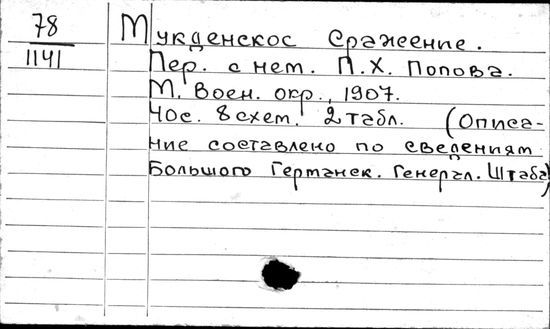 78
1141
Мукденское Сражение.
Пер. с нем. П.Х. Попова.
М. Воен. окр., 1907.
40с. 8 схем. 2 табл. (Описа-
ние составлено по сведениям
Большого Германск. Генерал. Штаба)